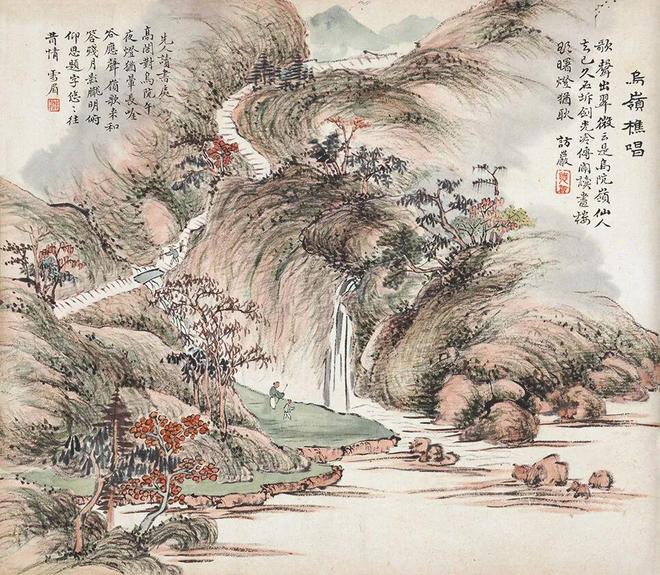 烏嶺樵唱
歌聲出翠微云是烏院嶺仙人
去已久石坼劍光冷傳聞讀畫樓
曙燈猶耿 訪巖
先人讀書處
高閣對烏院午
夜燈猶長吟
谷應聲嶺歌來和
答殘月影朧明俯
仰思題字悠々往
昔情 雪眉